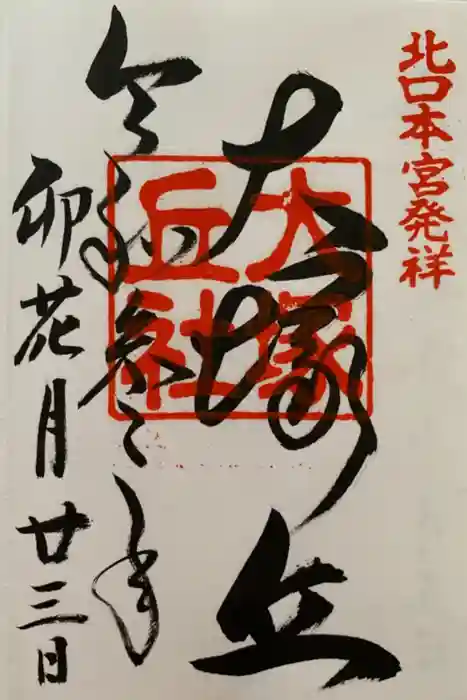 北口本宮発祥
大塚丘
大塚
丘社
令和参年
卯花月廿三日